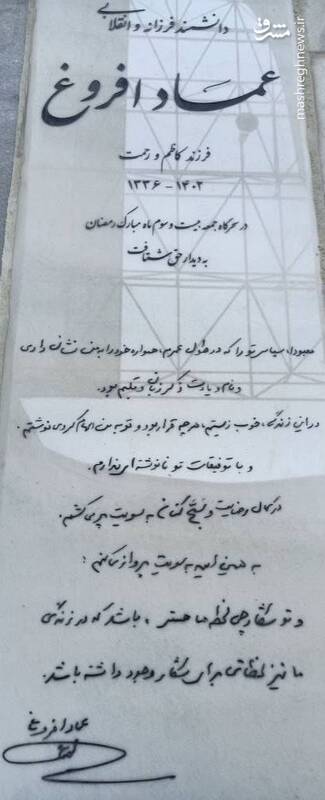 دانشمند فرزانه و انقلابی
عماد افروغ
فرزند کاظم و رحمت
۱۴۰۲ - ۱۳۳۶
در سحرگاه جمعه بیست و سوم ماه مبارک رمضان
به دیدار حق شتافت
معبودا، سپاس تو را که در طول عمرم، همواره خود را به من نشان دادی
و نام و یادت ذکر زبان و قلبم بود.
در این زندگی، خوب زیستم، هر چه قرار بود و تو به من الهام کردی نوشتم.
و با توفیقات تو نانوشته‌ای ندارم.
در کمال رضایت و تسبیح کنان به سویت پر می‌کشم.
به همین امید به سویت پرواز می‌کنم:
و تو شکارچی لحظه ما هستی، باشد که در زندگی
ما نیز لحظاتی برای شکار وجود داشته باشد.
عماد افروغ
مشرق
mashreghnews.ir